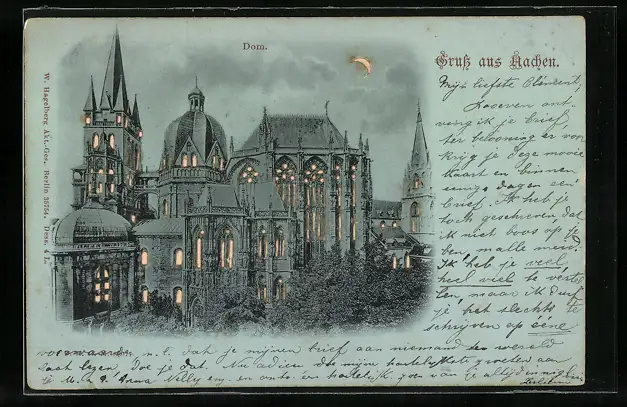 Dom.
Gruß aus Aachen.
W. Hagelberg Akt.-Ges. Berlin Dess.
Mijn liefste Clément,
Zooeven ont-
ving ik je brief
ter belooning er voor
krijg je deze mooie
kaart en binnen
eenige dagen een
brief. Ik heb je
toch geschreven, dat
ik niet boos op je
ben, malle meid.
Ik heb je veel,
heel veel te vertel-
len, maar ik durf
je het slechts te
schrijven op ééne
voorwaarde n.l. dat je mijnen brief aan niemand ter wereld
laat lezen, doe je dat. Nu adieu dus mijn hartelijkste groeten aan
je M. en en hartelijk van je altijd